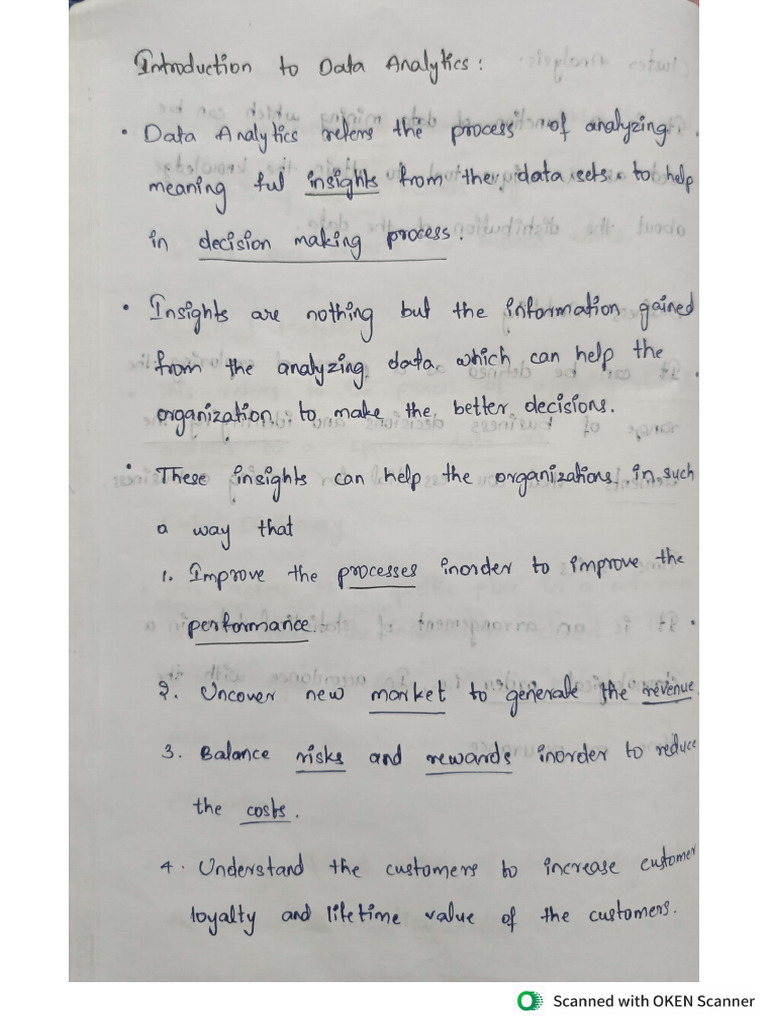 Introduction to Data Analytics:
• Data Analytics refers the process of analyzing
meaning ful insights from the data sets to help
in decision making process.
• Insights are nothing but the information gained
from the analyzing data which can help the
organization to make the better decisions.
• These insights can help the organizations in such
a way that
1. Improve the processes inorder to improve the
performance.
2. Uncover new market to generate the revenue
3. Balance risks and rewards inorder to reduce
the costs.
4. Understand the customers to increase customer
loyalty and lifetime value of the customers.
Scanned with OKEN Scanner